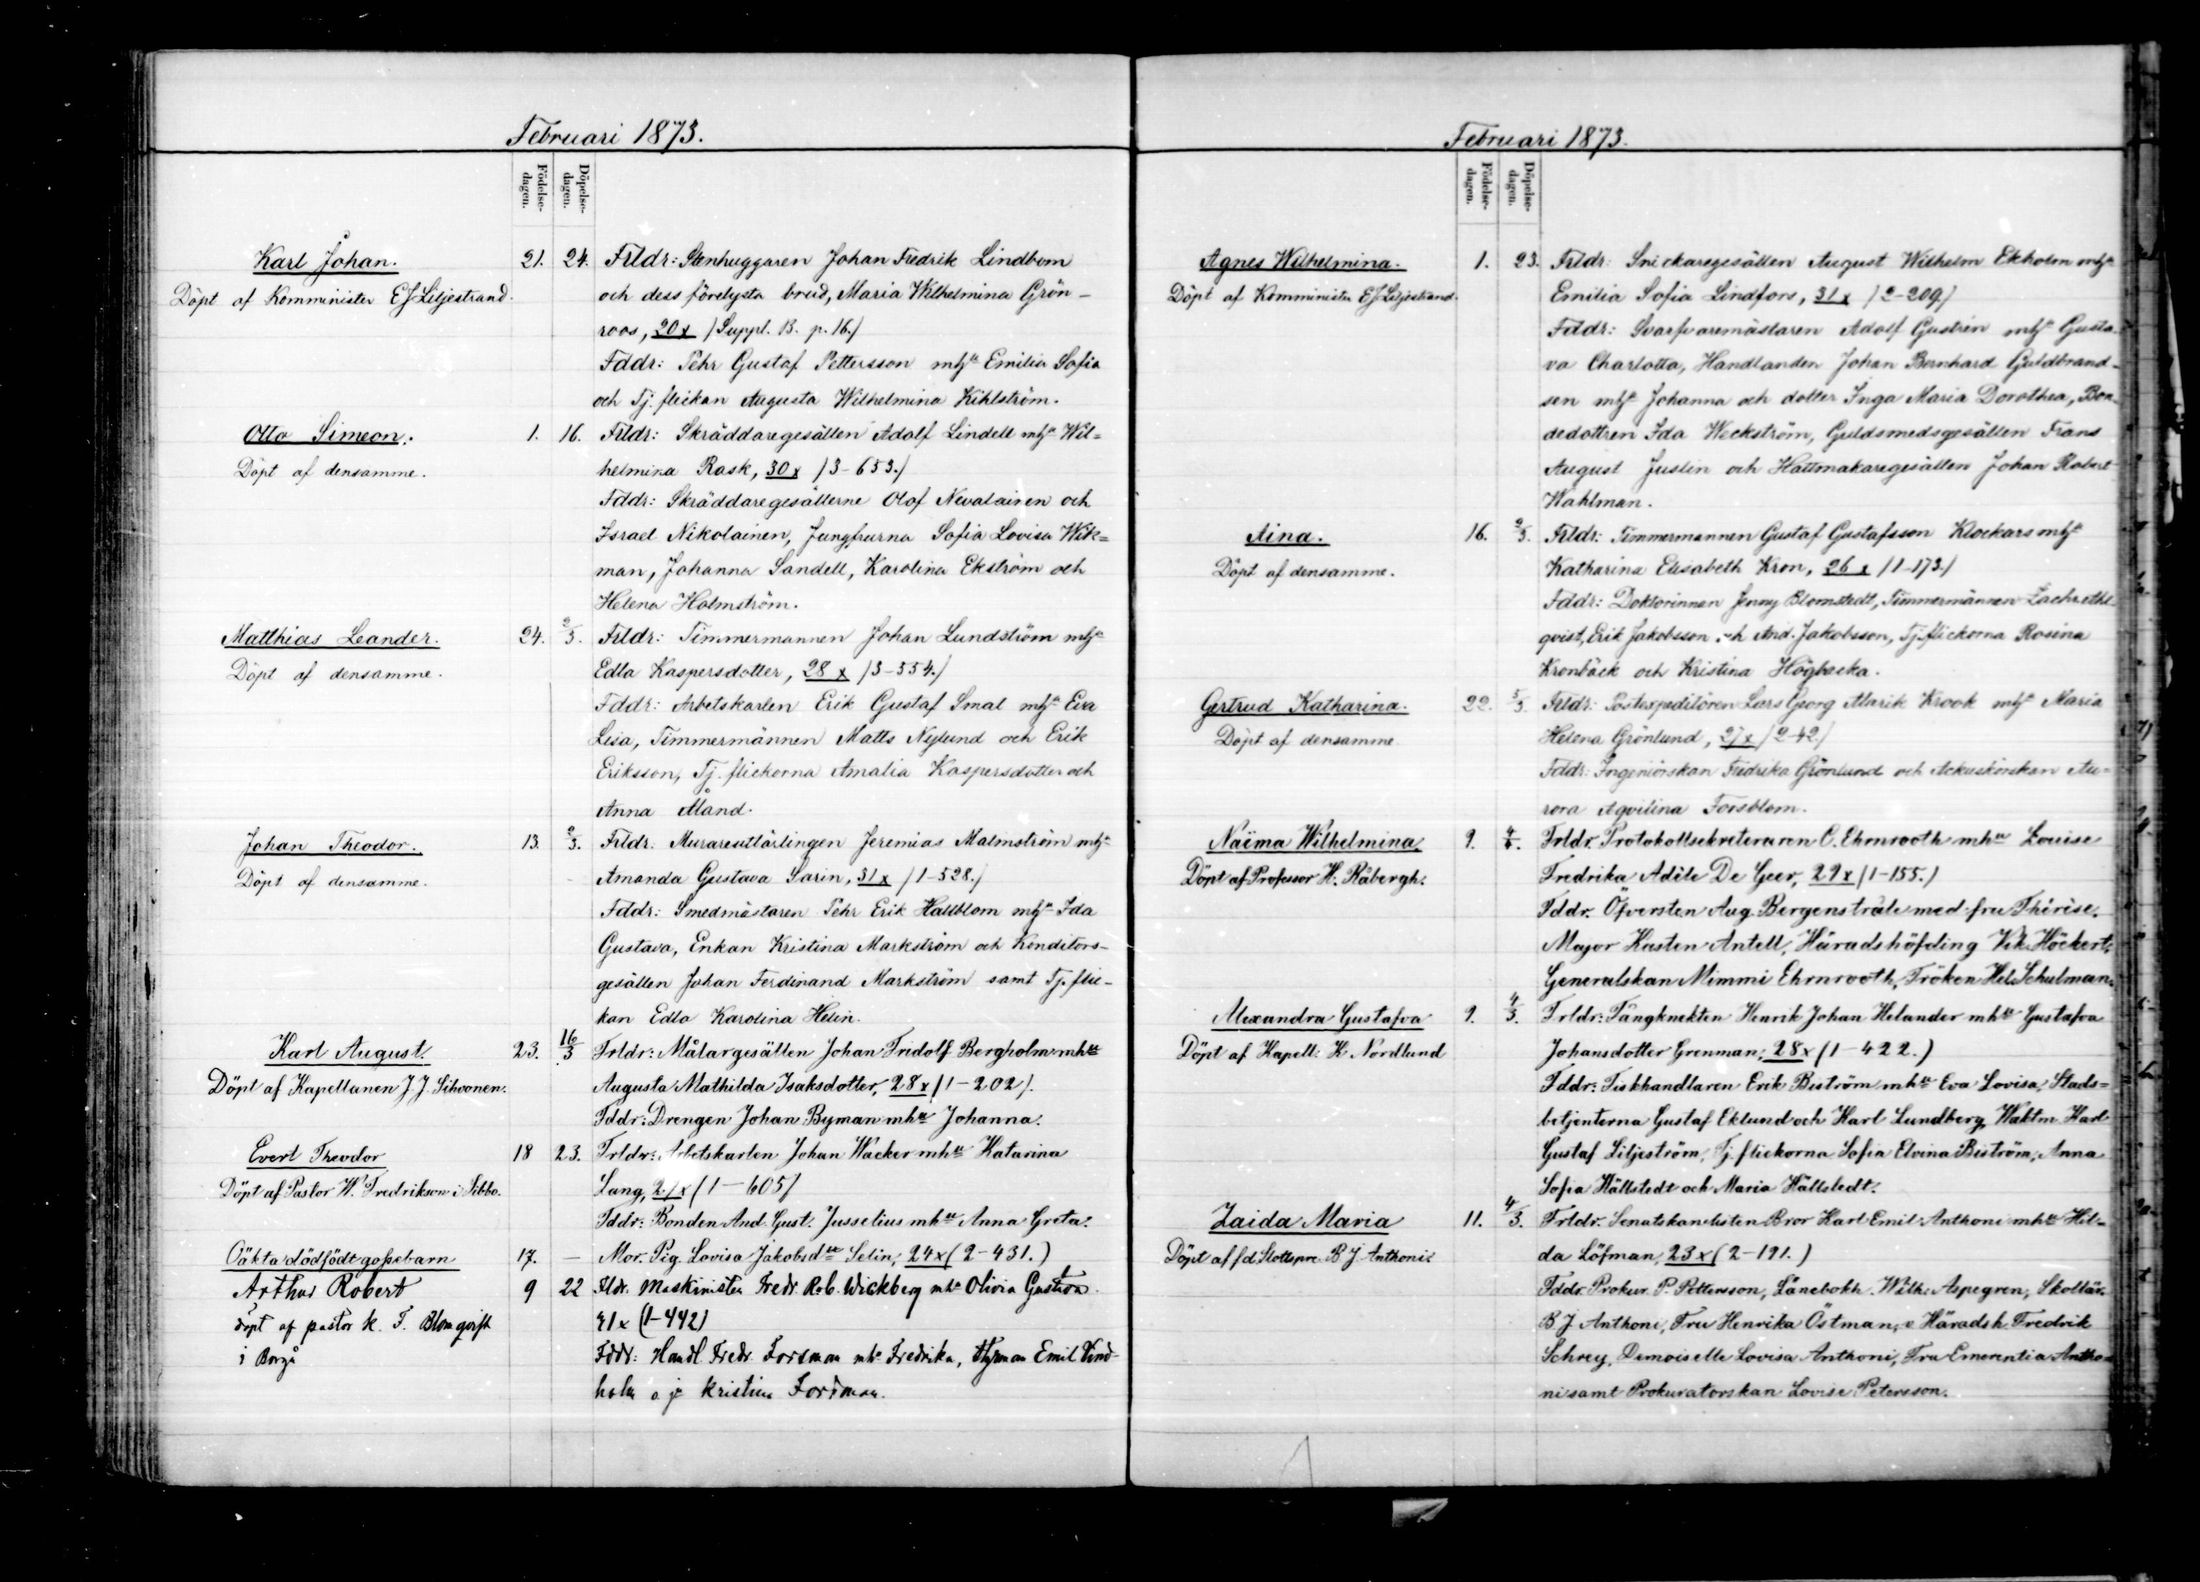 Februari 1873.
Födelse-
dagen.
Döpelse-
dagen.
Karl Johan.
Döpt af Komminister E J Liljestrand.
21. 24. Frldr: Stenhuggaren Johan Fredrik Lindbom
och dess förelysta brud, Maria Wilhelmina Grön-
roos, 20 x /Suppl. B. p. 16./
Fddr: Pehr Gustaf Pettersson mhje Emilia Sofia
och Tj. flickan Augusta Wilhelmina Kihlström.
Otto Simeon.
Döpt af densamme.
1. 16. Frldr: Skräddaregesällen Adolf Lindell mhje Wil=
helmina Rask, 30 x /3-653./
Fddr: Skräddaregesällerne Olof Nevalainen och
Israel Nikolainen, Jungfrurna Sofia Lovisa Wik=
man, Johanna Sandell, Karolina Ekström och
Helena Holmström.
Matthias Leander.
Döpt af densamme.
24. 2/3. Frldr: Timmermannen Johan Lundström mhje
Edla Kaspersdotter, 28 x /3-554./
Fddr: Arbetskarlen Erik Gustaf Smal mhje Eva
Lisa, Timmermännen Matts Nylund och Erik
Eriksson, Tj. flickorna Amalia Kaspersdotter och
Anna Åland.
Johan Theodor.
Döpt af densamme.
13. 2/3. Frldr: Murareutlärlingen Jeremias Malmström mhje
Amanda Gustava Sarin, 31 x /1-528./
Fddr: Smedmästaren Pehr Erik Hallblom mhje Ida
Gustava, Enkan Kristina Markström och Konditors-
gesällen Johan Ferdinand Markström samt Tj. flic-
kan Edla Karolina Helin.
Karl August.
Döpt af Kapellanen J. J. Sihvonen.
23. 16/3 Frldr: Målargesällen Johan Fridolf Bergholm mhu
Augusta Mathilda Isaksdotter, 28 x (1-202).
Fddr: Drengen Johan Byman mhu Johanna.
Evert Theodor
Döpt af Pastor W. Fredrikson i Sibbo.
18 23. Frldr: Arbetskarlen Johan Wacker mhu Katarina
Lang, 27 x (1-605)
Fddr: Bonden And. Gust. Jusselius mhu Anna Greta.
Oäkta dödfödt gossebarn
17. — Mor. Pig. Lovisa Jakobsdtr Selin, 24 x (2-431.)
Arthur Robert
döpt af pastor K. T. Blomqvist
i Borgå
9 22 Fldr. Maskinisten Fredr. Rob. Wickberg mhu Olivia Gustava
41 x (1-442)
Fddr: Handl. Fredr. Forsman mhu Fredrika, Emil Lind-
holm o jfr Kristina Forsman.
Februari 1873.
Födelse-
dagen.
Döpelse-
dagen.
Agnes Wilhelmina.
Döpt af Komminister E J Liljestrand.
1. 23. Frldr: Snickaregesällen August Wilhelm Ekholm mhje
Emilia Sofia Lindfors, 31 x /2-209/
Fddr: Svarfvaremästaren Adolf Gustrén mhje Gusta-
va Charlotta, Handlanden Johan Bernhard Guldbrand-
sen mhje Johanna och dotter Inga Maria Dorothea, Bon-
dedottren Ida Weckström, Guldsmedsgesällen Frans
August Juslin och Hattmakaregesällen Johan Robert
Wahlman.
Aina.
Döpt af densamme.
16. 2/3. Frldr: Timmermannen Gustaf Gustafsson Klockars mhje
Katharina Elisabeth Kron, 26 x /1-173./
Fddr: Doktorinnan Jenny Blomstedt, Timmermännen Zachr. Ahl-
qvist, Erik Jakobsson och And. Jakobsson, Tj. flickorna Rosina
Kronbäck och Kristina Högbacka.
Gertrud Katharina.
Döpt af densamme
22. 5/3. Frldr: Postexpeditören Lars Georg Alarik Krook mhje Maria
Helena Grönlund, 27 x /2-42./
Fddr: Ingeniörskan Fredrika Grönlund och Ackuskörskan Au-
rora Aqvilina Forsblom.
Naëma Wilhelmina
Döpt af Professor H. Råbergh.
9. Frldr. Protokollsekreteraren O. Ehrnrooth mhu Louise
Fredrika Adèle De Geer, 29 x (1-155.)
Fddr. Öfversten Aug. Bergenstråle med fru Thérèse,
Major Kasten Antell, Häradshöfding Vik. Höckert,
Generalskan Mimmi Ehrnrooth, Fröken Hel. Schulman.
Alexandra Gustafva
Döpt af Kapell: K. Nordlund
9. 4/3. Frldr: Fångknekten Henrik Johan Helander mhu Gustafva
Johansdotter Grenman, 28 x (1-422.)
Fddr: Fiskhandlaren Erik Biström mhu Eva Lovisa, Stads=
betjenterna Gustaf Eklund och Karl Lundberg, Waktm. Karl
Gustaf Liljeström, Tj. flickorna Sofia Elvina Biström, Anna
Sofia Hällstedt och Maria Hällstedt.
Zaida Maria
Döpt af fd Slottspre. B J Anthoni.
11. 4/3. Frldr. Senatskanslisten Bror Karl Emil Anthoni mhu Hil=
da Löfman, 23 x (2-191.)
Fddr. Prokur. P. Pettersson, Länebokh. Wilh. Aspegren, Skollär.
B J Anthoni, Fru Henrika Östman, v. Häradsh. Fredrik
Schrey, Demoiselle Lovisa Anthoni, Fru Emerentia Antho-
ni samt Prokuratorskan Lovise Petersson.